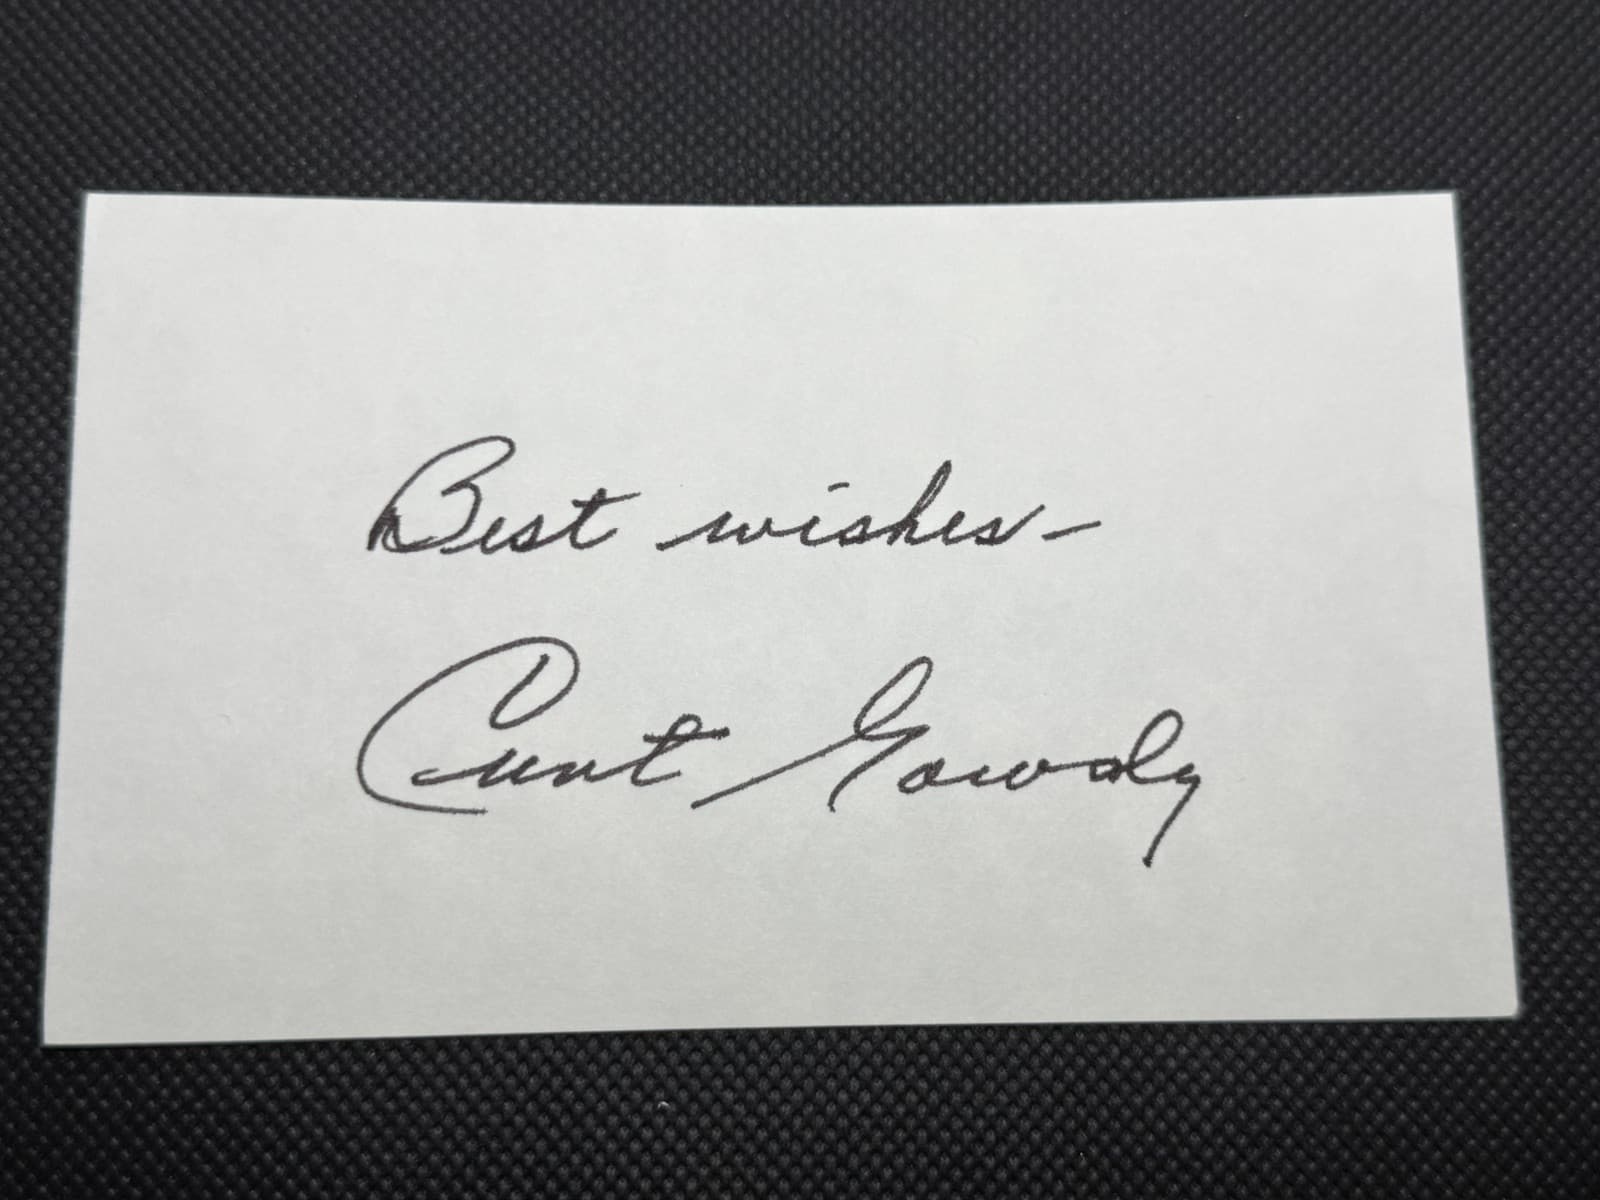 Best wishes-
Curt Gowdy